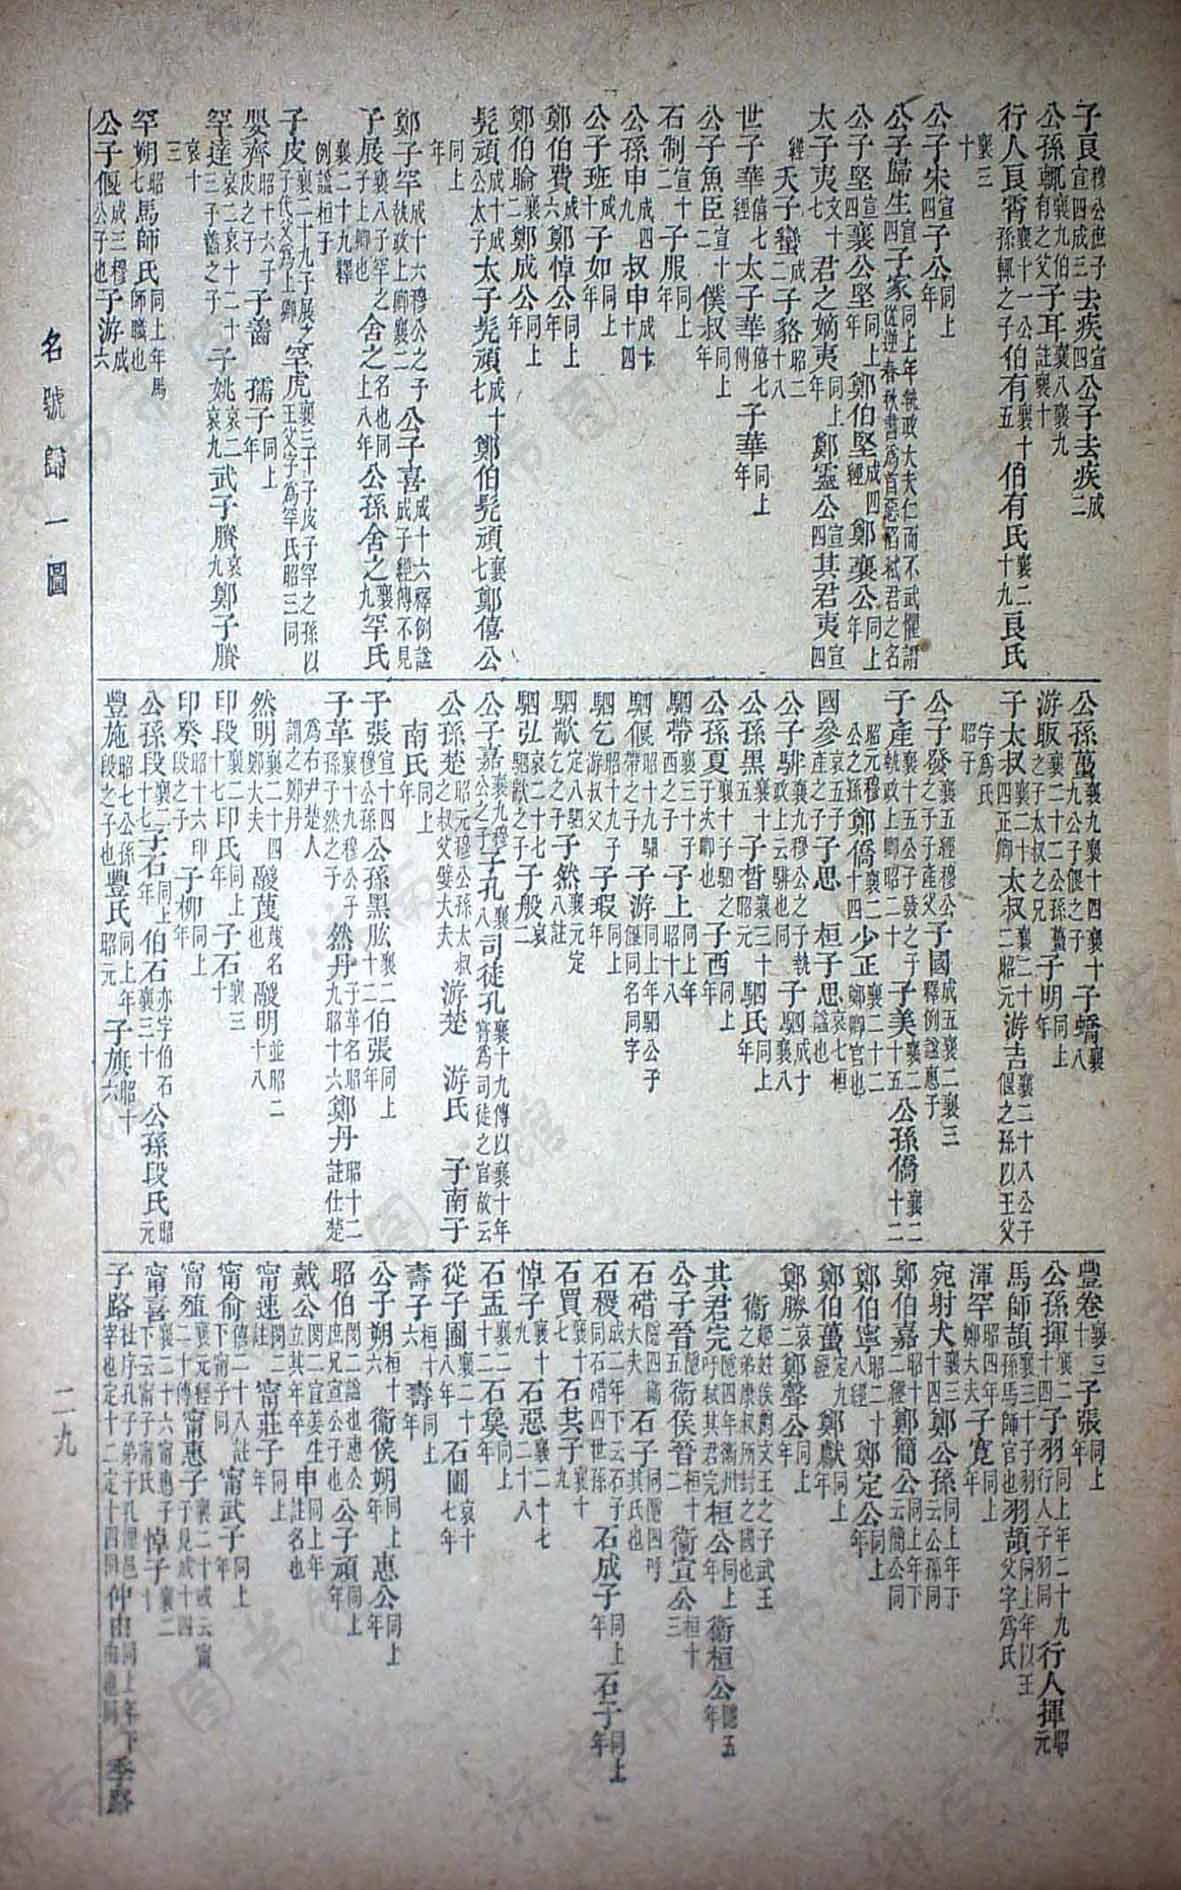 子良穆公庶子宣四成三去疾宣四公子去疾成二
公孫輒襄九伯有之父子耳襄八襄九註襄十
行人良霄襄十一公孫輒之子伯有襄十五伯有氏襄二十九良氏
襄三十
公子宋宣四子公同上年
公子歸生宣四子家同上年執政大夫仁而不武懼譖從逆春秋書為首惡稱弒君之名
公子堅宣四襄公堅同上年鄭伯堅成四經鄭襄公同上年
太子夷文十七君之嫡夷同上年鄭靈公宣四其君夷宣四
經天子蠻成二子貉昭二十八
世子華僖七經太子華僖七傳子華同上年
公子魚臣宣十二僕叔同上年
石制宣十二子服同上年
公孫申成四九叔申成十四
公子班成十子如同上年
鄭伯費成六鄭悼公同上年
鄭伯睔襄二鄭成公同上年
髡頑成十成公太子太子髡頑成十七鄭伯髡頑襄七鄭僖公
同上年
鄭子罕成十六穆公之子執政上卿襄二公子喜成十六釋例謚成子經傳不見
子展襄八子罕之子上卿也舍之名也同上八年公孫舍之襄九罕氏
襄二十九釋例謚桓子
子皮襄二十九子展之子代父為上卿罕虎襄三十子皮子罕之孫以王父字為罕氏昭三同
嬰齊昭十六子皮之子子齹 孺子同上年
罕達哀二哀十二十三子齹之子子姚哀二哀九武子賸哀九鄭子賸
哀十三
罕朔昭七馬師氏同上年馬師職也
公子偃成三穆公子也子游成六
公孫蠆襄九襄十四襄十九公子偃之子子蟜襄八
游販襄二十二公孫蠆之子太叔之兄子明同上年
子太叔襄二十四正卿太叔襄二十二昭元游吉襄二十八公子偃之孫以王父
字為氏昭子
公子發襄五經穆公之子子產父子國成五襄二襄三釋例謚惠子
子產襄十五公子發之子執政上卿昭二十子美襄二十五公孫僑襄二十二
昭元穆公之孫鄭僑襄二十四少正襄二十二鄭卿官也
國參哀五子產之子子思 桓子思哀七桓謚也
公子騑襄九穆公之子執政上云騑也同子駟成十襄八
公孫黑襄十五子晳襄三十昭元駟氏同上年
公孫夏襄十子駟之子次卿也子西同上年
駟帶襄三十子西之子子上同上年昭十八
駟偃昭十九駟帶之子子游同上年駟公子偃同名同字
駟乞昭十九子游叔父子瑕同上年
駟歂定八駟乞之子子然襄元定八註
駟弘哀二十七駟歂之子子般哀二
公子嘉襄九穆公之子子孔襄八司徒孔襄十九傳以襄十年嘗為司徒之官故云
公孫楚昭元穆公孫太叔之叔父嬖大夫游楚 游氏 子南子
南氏同上年
子張宣十四穆公孫公孫黑肱襄二十二伯張同上年
子革襄十九穆公子孫子然之子然丹子革名昭九昭十六鄭丹昭十二註仕楚
為右尹楚人謂之鄭丹
然明襄二十四鄭大夫鬷蔑蔑名也鬷明並昭二十八
印段襄二十七印氏同上年子石襄三十
印癸昭十六印段之子子柳同上年
公孫段襄二十七子石同上年伯石亦字伯石襄三十公孫段氏昭元
豐施昭七公孫段之子也豐氏同上年昭元子旗昭十六
豐卷襄三十子張同上年
公孫揮襄二十四子羽同上年二十九行人子羽同行人揮昭元
馬師頡襄三十子羽孫馬師官也羽頡同上年以王父字為氏
渾罕昭四年鄭大夫子寬同上年
宛射犬襄二十四鄭公孫同上年下云公孫同
鄭伯嘉昭十二經鄭簡公同上年下云簡公同
鄭伯寧昭二十八經鄭定公同上年
鄭伯蠆定九經鄭獻同上年
鄭勝哀二鄭聲公同上年
衞經姓侯爵文王之子武王之弟康叔所封之國也
其君完隱四年衞州吁弒其君完桓公同上年衞桓公隱五年
公子晉隱五衞侯晉桓十二衞宣公桓十三
石碏隱四衞大夫石子同隱四呼其氏也
石稷成二年下云石子同石碏四世孫石成子同上年石子同上年
石買襄十七石共子襄十九
悼子襄十九石惡襄二十七二十八
石盂襄二十二石奠同上年
從子圃襄二十八年石圃哀十七年
壽子桓十六壽同上年
公子朔桓十六衞侯朔同上年惠公同上年
昭伯閔二謚也惠公庶兄宣公子也公子頑同上年
戴公閔二宣姜生立其年卒申同上年註名也
甯速閔二註甯莊子同上年
甯俞僖二十八註下甯子同甯武子同上年
甯殖襄元經二十傳甯惠子襄二十或云甯子見成十四
甯喜襄二十六甯惠子下云甯子甯氏悼子襄二十
子路杜序孔子弟子孔悝邑宰也定十二定十四同仲由同上年下由也同季路
名號歸一圖
二九